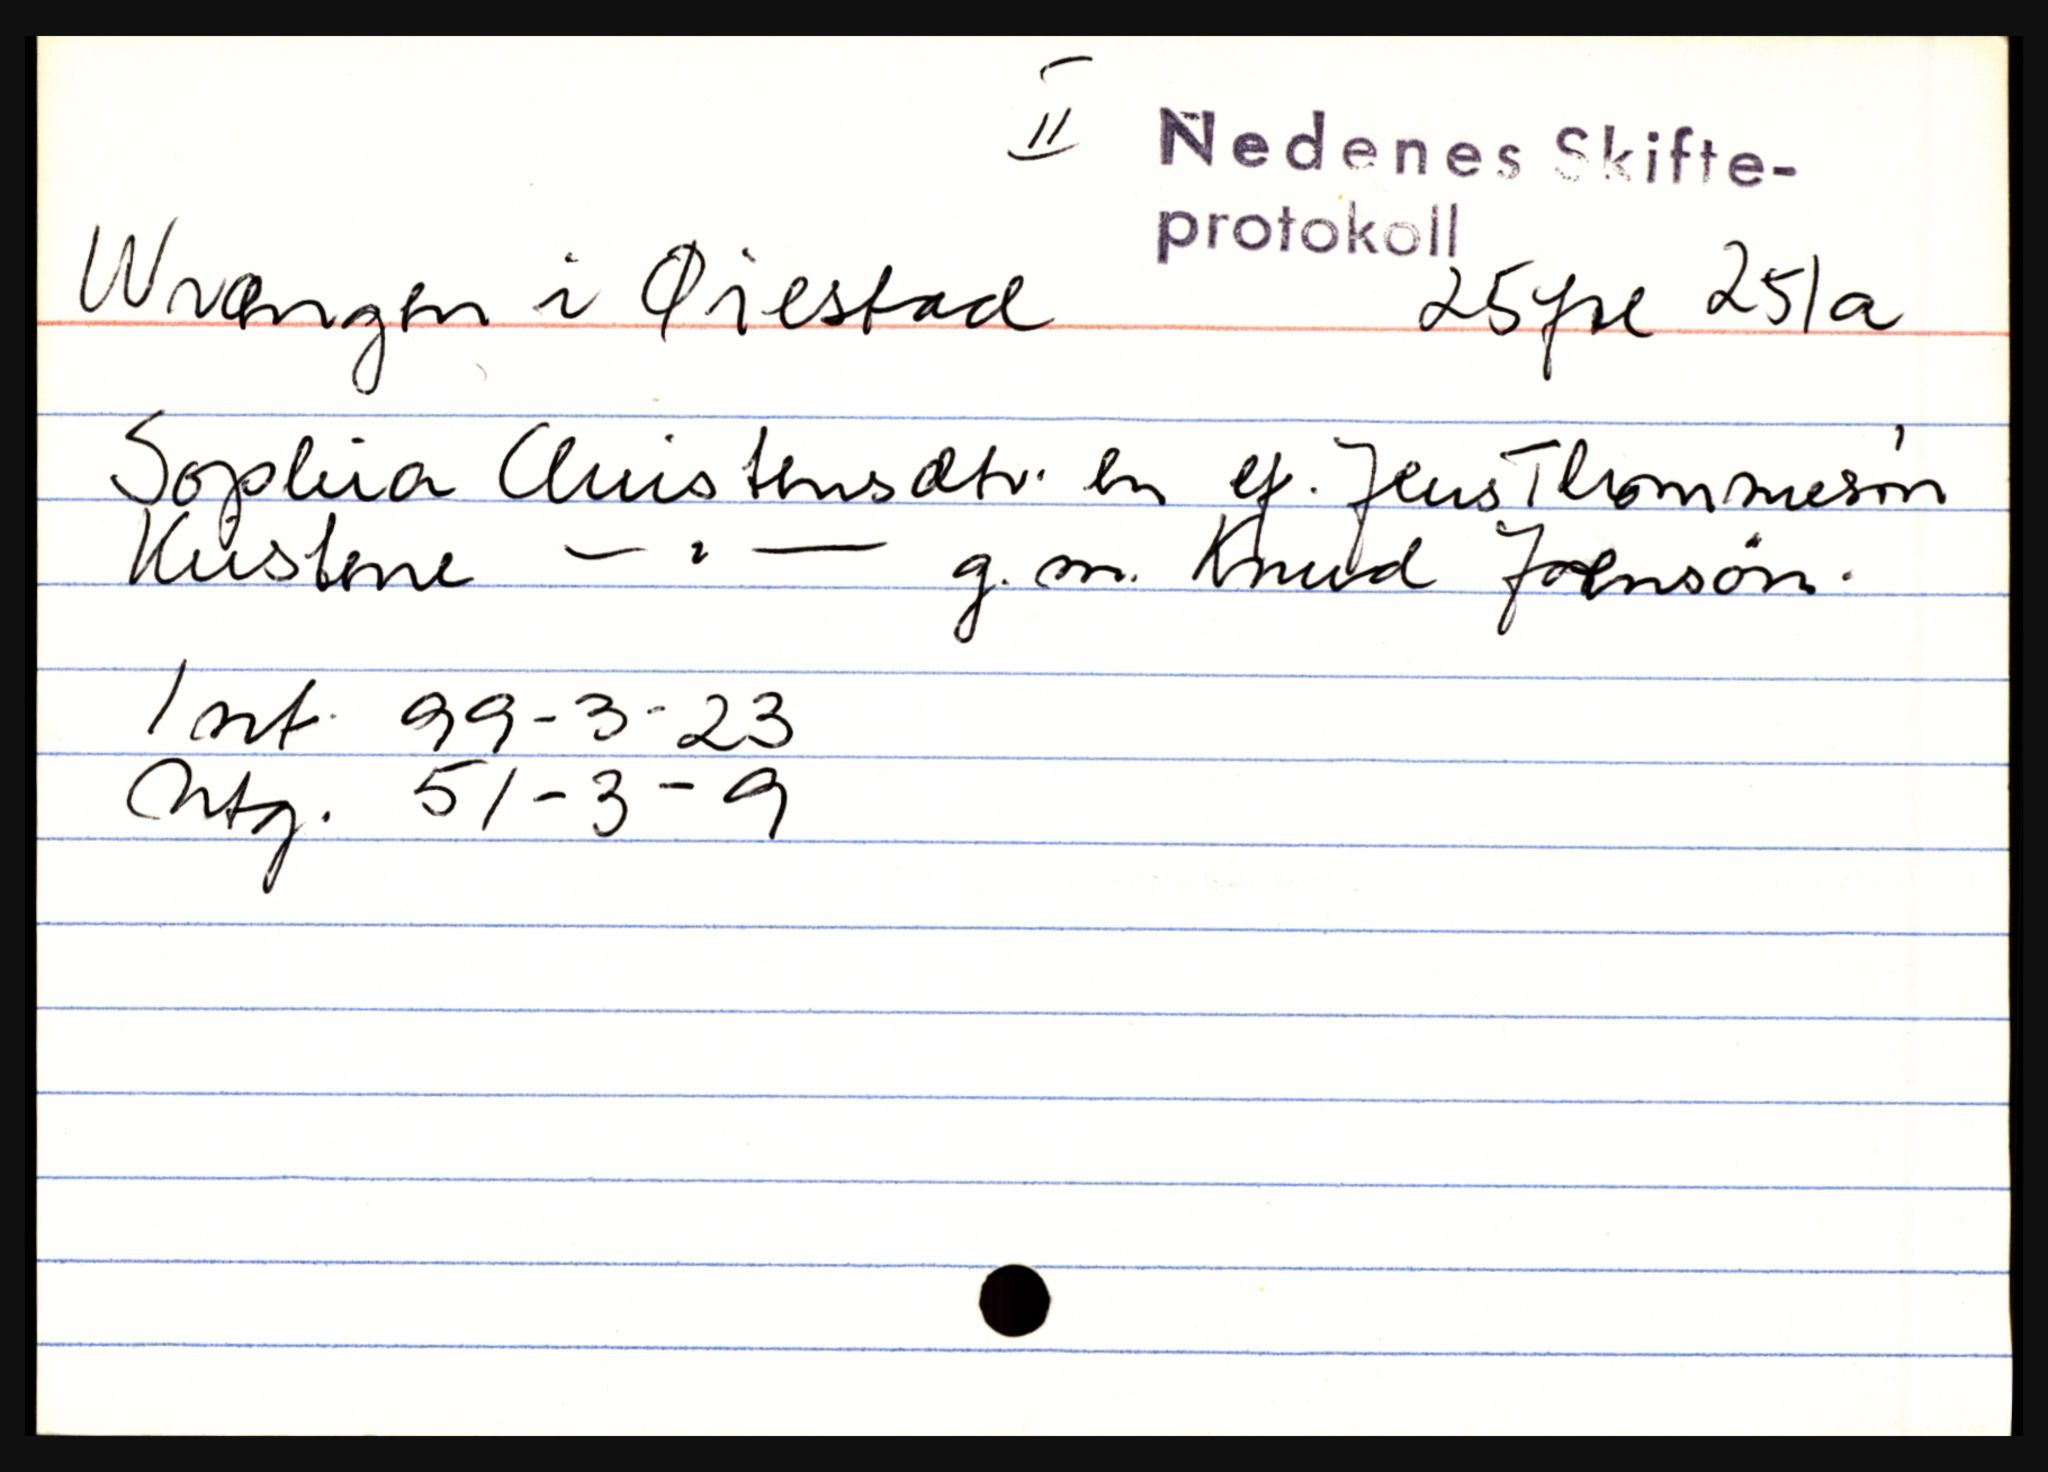 II
Nedenes Skifte-
protokoll
Wrængen i Øiestad 25fre 251a
Sophia Christensdtr. en ef. Jens Thommesøn
Kirstene — " — g.m. Knud Joensøn.
Int. 99-3-23
Ntg. 51-3-9